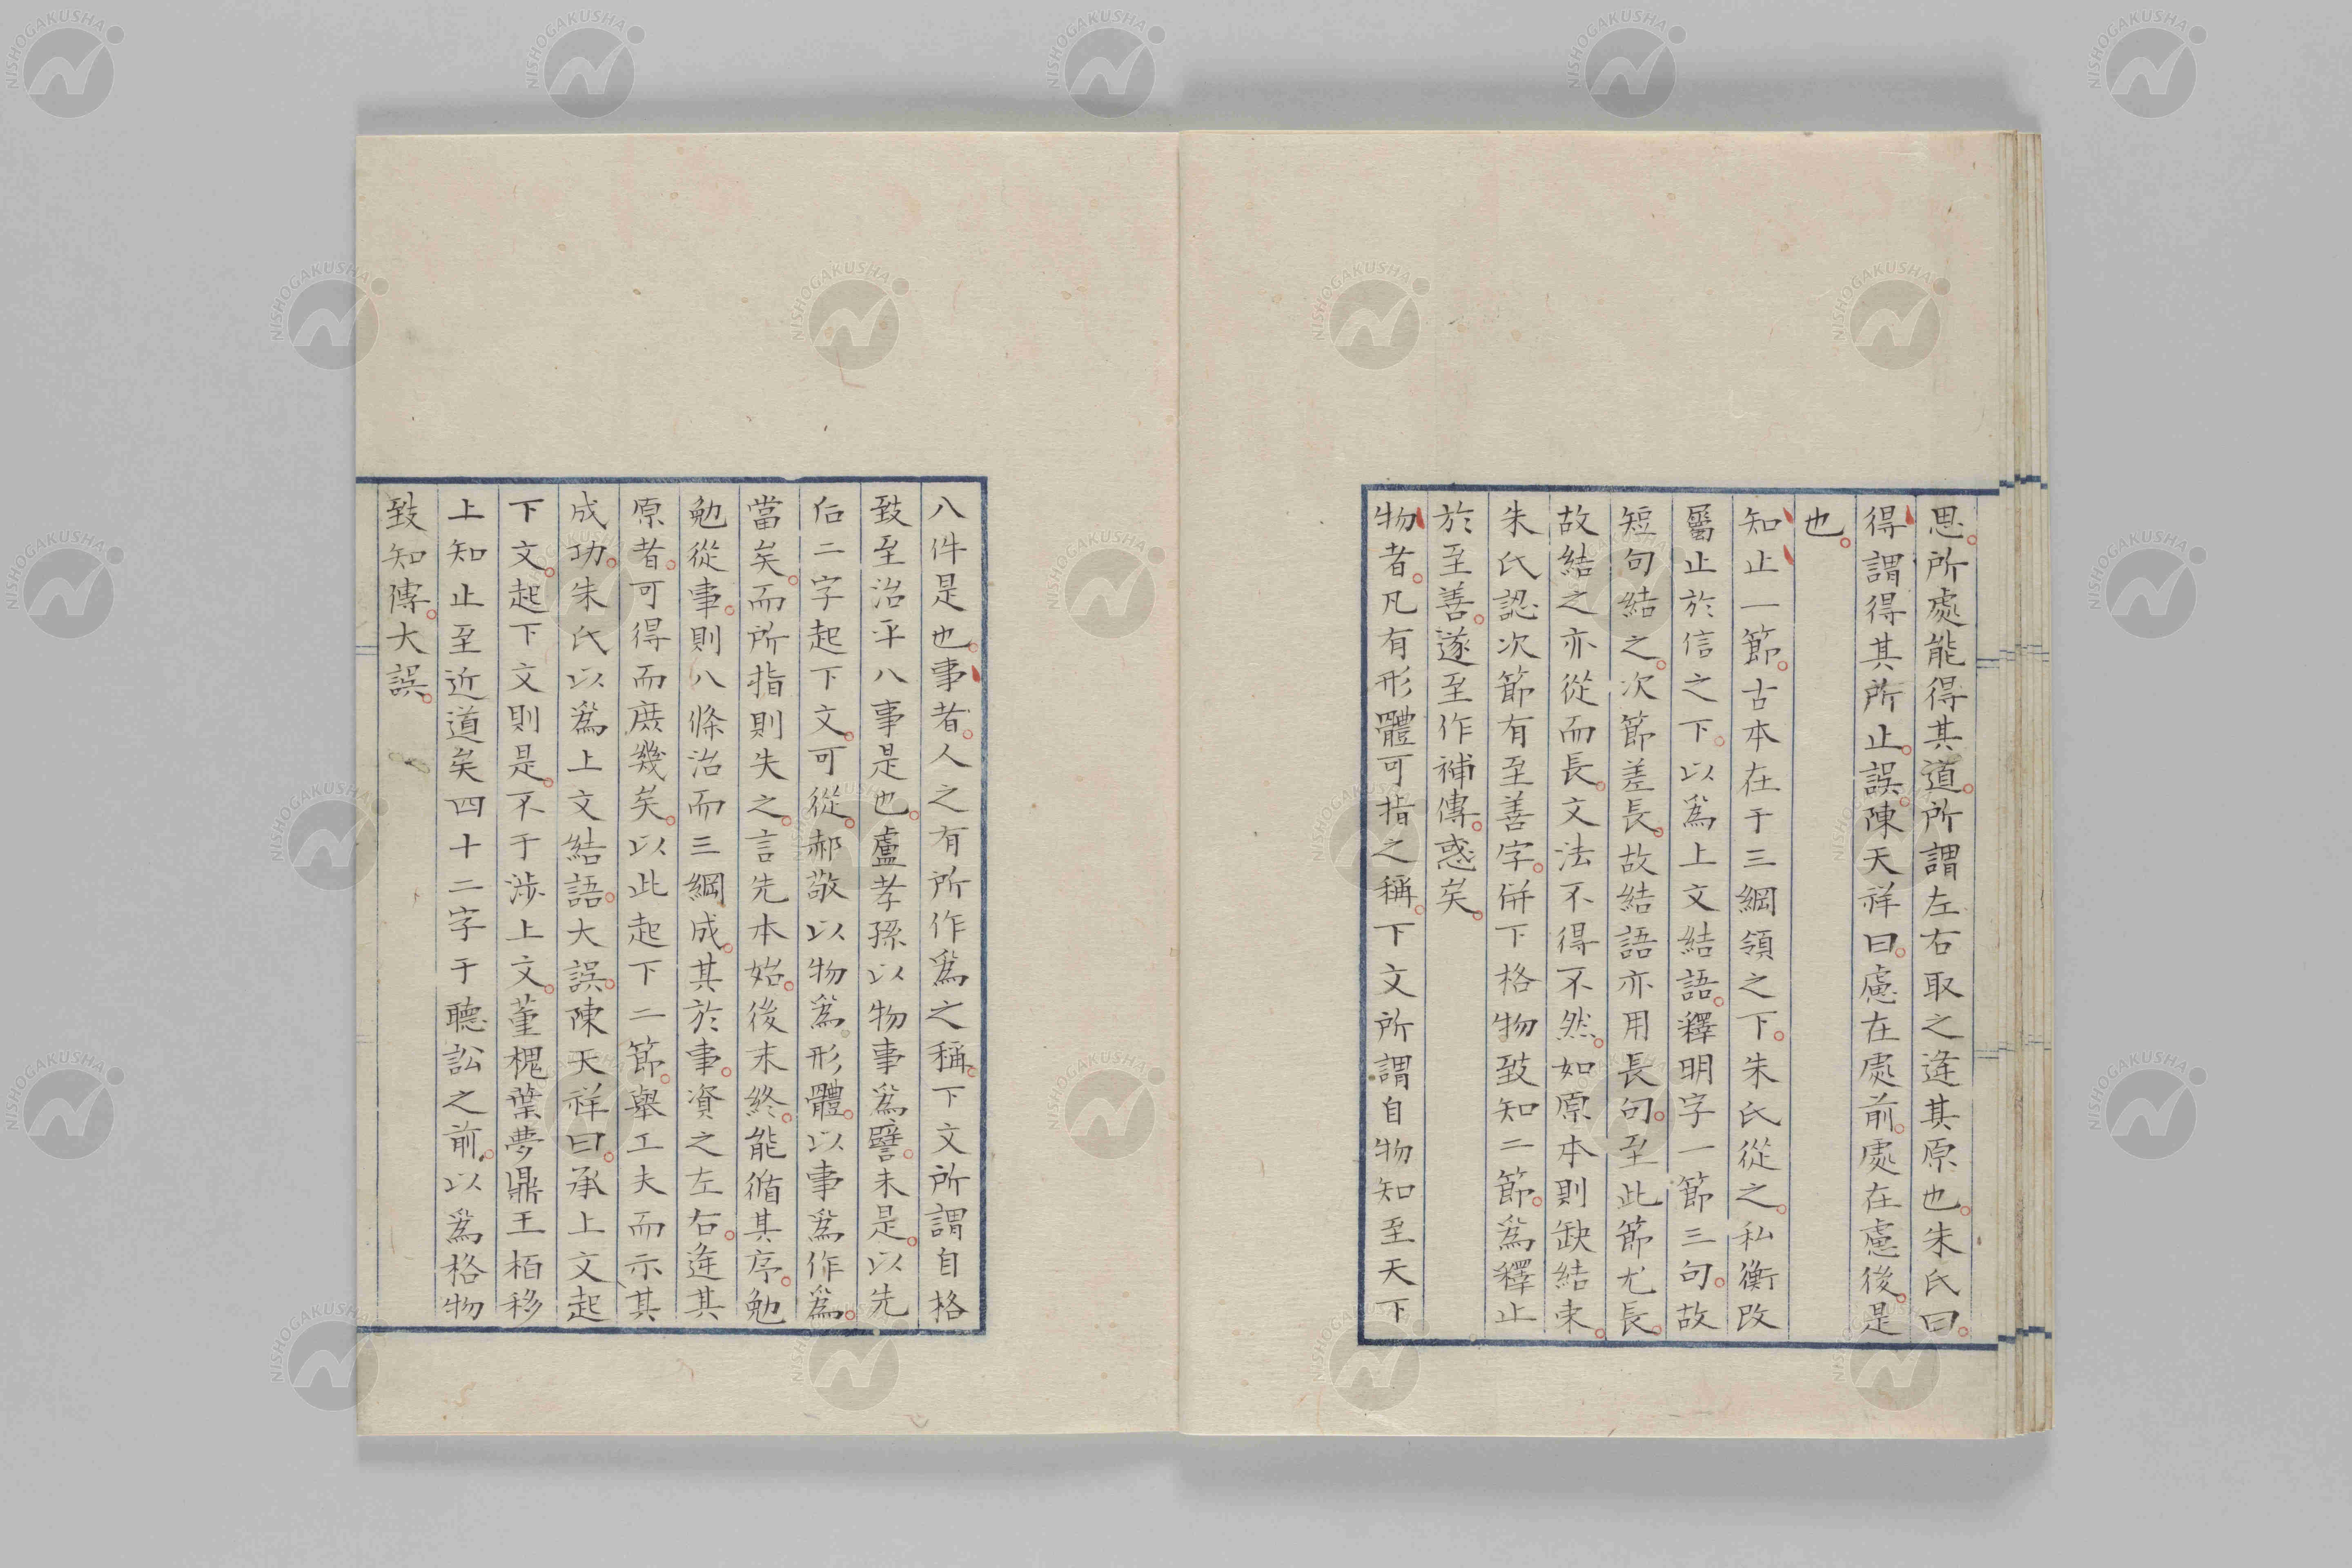 思所處能得其道所謂左右取之逢其原也朱氏曰
得謂得其所止誤陳天祥曰慮在處前處在慮後是
也
知止一節古本在于三綱領之下朱氏從之私衡改
屬止於信之下以爲上文結語釋明字一節三句故
短句結之次節差長故結語亦用長句至此節尤長
故結之亦從而長文法不得不然如原本則缺結束
朱氏認次節有至善字併下格物致知二節爲釋止
於至善遂至作補傳惑矣
物者凡有形體可指之稱下文所謂自物知至天下
八件是也事者人之有所作爲之稱下文所謂自格
致至治平八事是也盧孝孫以物事爲譬未是以先
后二字起下文可從郝敬以物爲形體以事爲作爲
當矣而所指則失之言先本始後末終能循其序勉
勉從事則八條治而三綱成其於事資之左右逢其
原者可得而庶幾矣以此起下二節舉工夫而示其
成功朱氏以爲上文結語大誤陳天祥曰承上文起
下文起下文則是不于涉上文董槐葉夢鼎王栢移
上知止至近道矣四十二字于聽訟之前以爲格物
致知傳大誤
NISHOGAKUSHA